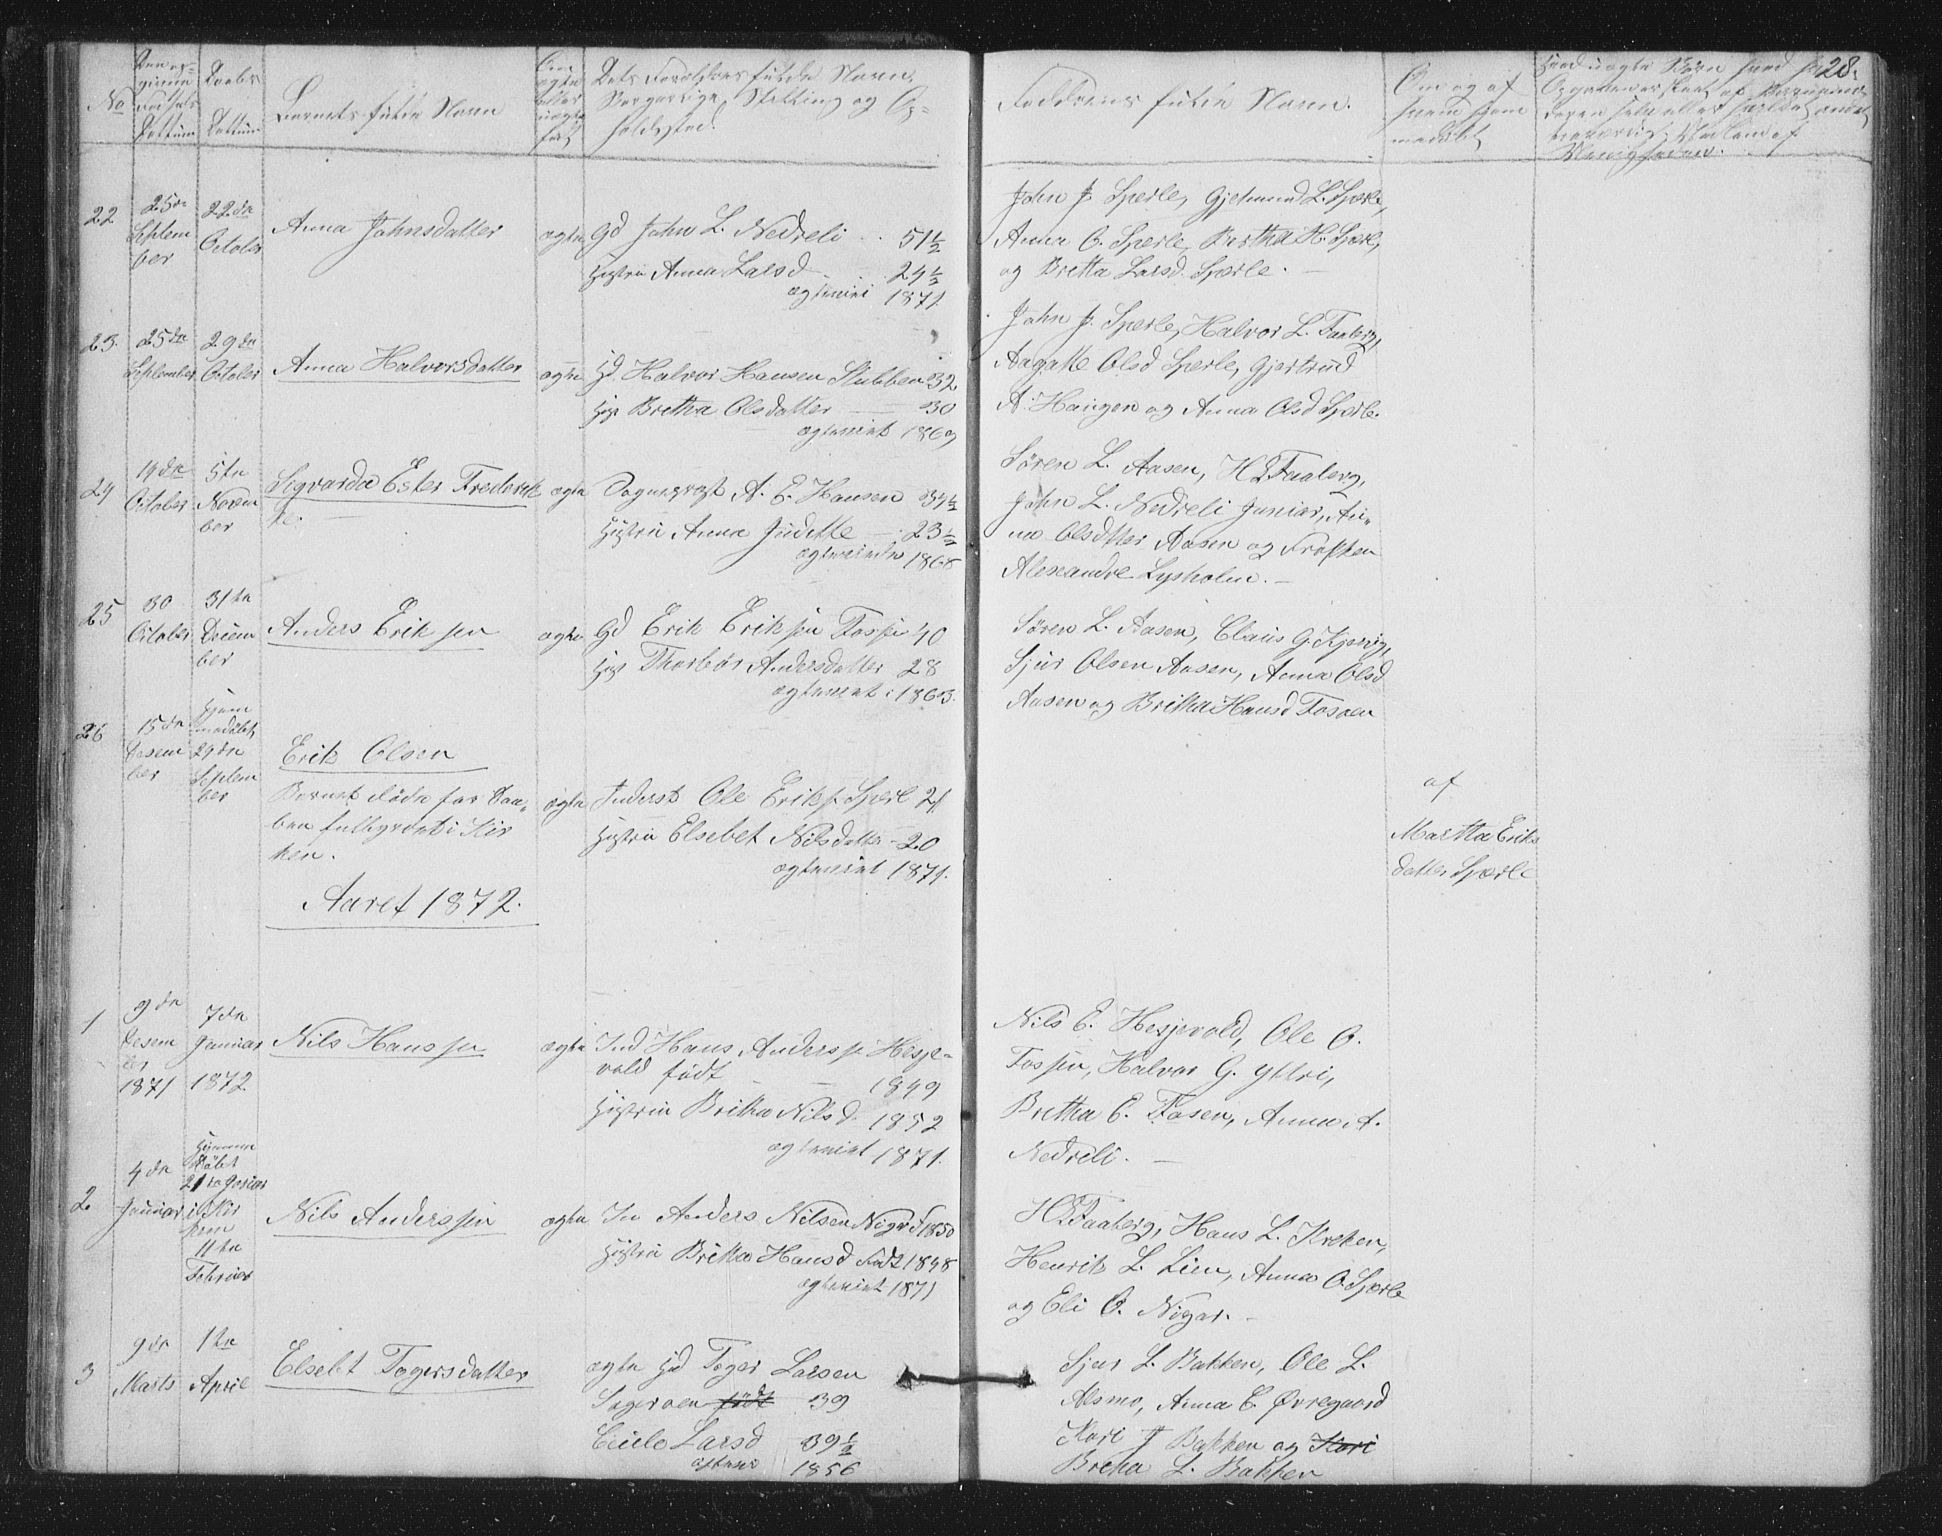 28.
No
Den op-
givne
Fødsels
Dattum
Daabs
Dattum
Barnets fulde Navn
Om
ægte
eller
uægte
født
Dets Forældres fulde Navn,
Borgerlige Stilling og Op-
holdssted.
Faddernes fulde Navn.
Om og af
hvem hjem
medøbt
22
25de
Septem
ber
22de
October
Anna Johnsdatter
ægte
Gd John L. Nedreli 51½
Hustru Anna Larsd 24½
ægteviet 1871
John J. Sperle, Gjetmund L. Sperle,
Anna O. Sperle, Birtha H. Sperl,
og Bretta Larsd. Sperle.
23.
25de
September
29de
October
Anna Halvorsdatter
ægte
Hd. Halvor Hansen Stubben 32
Hust Bretha Olsdatter 30
ægteviet 1869
John J. Sperle, Halvor L. Faaberg,
Aagatte Olsd Sperle, Gjertrud
A. Haugen og Anna Olsd Sperle.
24
19de
October
5te
Novem
ber
Sigvarda Ester Frederik
ke.
ægte
A. E. Hansen 34½
Hustru Anna Juditte 23½
ægteviede 1868
Søren L. Aasen, H L Faaberg,
John L. Nedreli Junior, An-
na Olsdtter Aasen og Frøken
Alexandre Lysholm.
25
30
October
31te
Decem
ber
Anders Eriksen
ægte
Gd Erik Eriksen Fossen 40
Hust Thorbør Andersdatter 28
ægteviet i 1863.
Søren L. Aasen, Claus G.
Sjur Olsen Aasen, Anna Olsd
Aasen og Britha Hansd Fosøen
26
15de
Desem
ber
hjem
medøbt
29de
Septem
ber
Erik Olsen
Barnet døde før Daa-
ben fulbyrdet i Kir
ken.
ægte
Inderst Ole Eriks. Sperl 21
Hustru Elsebet Nilsdatter 20
ægteviet 1871.
af
Martta Eriks
datter Sperle
Aaret 1872.
1
9de
Desem
ber
1871
7de
Januar
1872
Nils Hanssen
ægte
Ind Hans Anderss. Hesje-
vold født 1849
Hustru Britha Nilsd. 1852
ægteviet 1871.
Nils E. Hesjevold, Ole O.
Fossen, Halvor G. Yttri,
Bretha E. Fosen, Anna A.
Nedreli.
2
4de
Januar
Hjemme
døbt
21 Januar
i Kir
ken
11te
Februar
Nils Anderssen
ægte
In Anders Nilsen Nigar f 1850
Hustru Britha Hansd født 1848
ægteviet 1871
H L Faaberg, Hans L. Kreken,
Henrik L. Lien, Anna O Sperle
og Eli O. Nigar.
3
9de
Marts
1te
April
Elsebt Tøgersdatter
ægte Hd Tøger Larsen
Sogerøen født 39
Cicile Larsd 39½
ægteviet 1856
Sjur L. Bakken, Ole L.
Alsmo, Anna E. Øvregaard
Kari J Bakken og Kari
Bretha L. Bakken